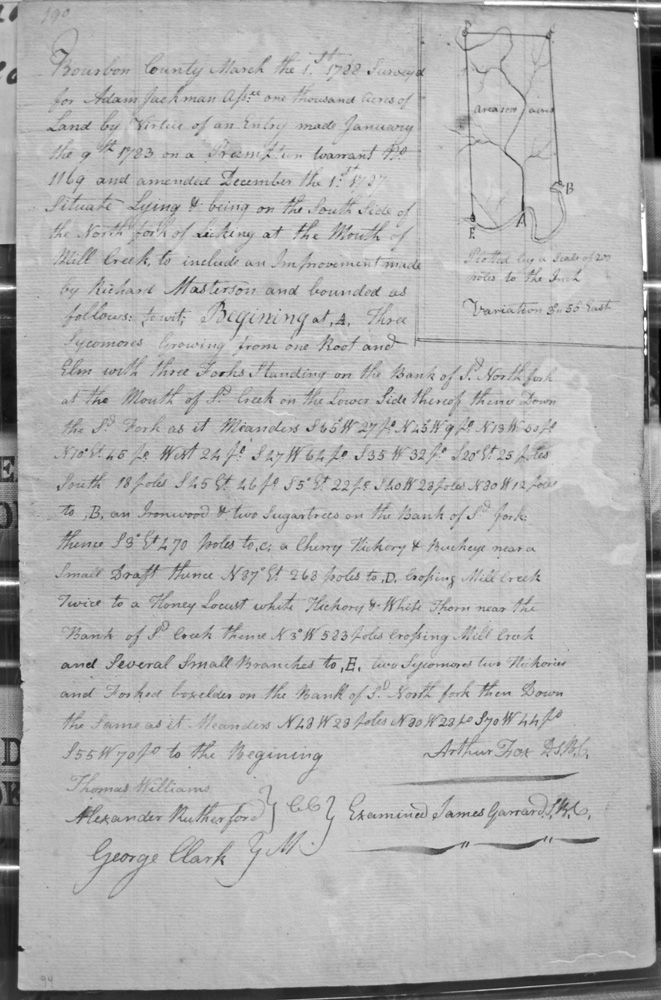 190
Bourbon County March the 1.st 1788 Survey'd
for Adam Jackman Assee one thousand Acres of
Land by Virtue of an Entry made January
the 9th 1783 on a Preemption warrant No.
1169 and amended December the 1.st 1787
Situate Lying & being on the South Side of
the North fork of Licking at the Mouth of
Mill Creek, to include an Improvement made
by Richard Masterson and bounded as
follows: towit, Begining at ,A, Three
Sycomores Growing from one Root and
Elm with three Forks Standing on the Bank of Sd. North fork
at the Mouth of Sd. Creek on the Lower Side thereof thence Down
the Sd. Fork as it Meanders S65W 27 po N45W 9 po N13W 50 po
N10°Et 45 po West 24 po S47W 64 po S35W 32 po S20°Et 25 poles
South 18 poles S45Et 46 po S5°Et 22 po S40W 23 poles N30W 12 poles
to ,B, an Ironwood & two Sugartrees on the Bank of Sd fork
thence S3°Et 470 poles to ,C, a Cherry Hickory & Buckeye near a
Small Draft thence N87°Et 263 poles to ,D, Crossing Mill Creek
Twice to a Honey Locust white Hickory & White Thorn near the
Bank of Sd Creek thence N3°W 523 poles Crossing Mill Creek
and Several Small Branches to ,E, two Sycomores two Hickories
and Forked boxelder on the Bank of Sd North fork then Down
the Same as it Meanders N43W 23 poles N80W 22 po S70W 44 po
S55W 70 po to the Begining
Arthur Fox D.S.B.C.
Thomas Williams
Alexander Rutherford } CC } Examined James Garrard, S.B.C.
George Clark } M.
area 1000 acres
B
A
E
Plotted by a Scale of 200
poles to the Inch
Variation 3° 55 East
94